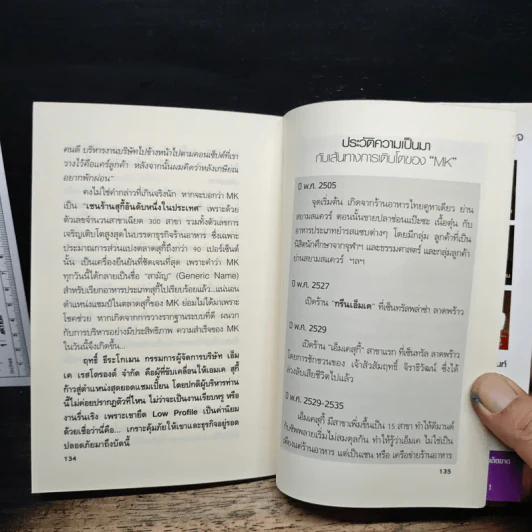 คนดี บริหารงานบริษัทไปข้างหน้าไปตามคอนเซ็ปต์ที่เรา
วางไว้คือแคร์ลูกค้า หลังจากนั้นผมคิดว่าหลังเกษียณ
อยากพักผ่อน"
คงไม่ใช่คำกล่าวที่เกินจริงนัก หากจะบอกว่า MK
เป็น "เชนร้านสุกี้อันดับหนึ่งในประเทศ" เพราะด้วย
ตัวเลขจำนวนสาขาเฉียด 300 สาขา รวมทั้งตัวเลขการ
เจริญเติบโตสูงสุดในบรรดาธุรกิจร้านอาหาร ซึ่งเฉพาะ
ประมาณการส่วนแบ่งตลาดสุกี้ถึงกว่า 90 เปอร์เซ็นต์
นั้น เป็นเครื่องยืนยันที่ชัดเจนที่สุด เพราะคำว่า MK
ทุกวันนี้ได้กลายเป็นชื่อ "สามัญ" (Generic Name)
สำหรับเรียกอาหารประเภทสุกี้ไปเรียบร้อยแล้ว...แน่นอน
ตำแหน่งแชมป์ในตลาดสุกี้ของ MK ย่อมไม่ได้มาเพราะ
โชคช่วย หากเกิดจากการวางรากฐานระบบที่ดี ผนวก
กับการบริหารอย่างมีประสิทธิภาพ ความสำเร็จของ MK
ในวันนี้จึงเกิดขึ้น...
ฤทธิ์ ธีระโกเมน กรรมการผู้จัดการบริษัท เอ็ม
เค เรสโตรองต์ จำกัด คือผู้ที่ขับเคลื่อนให้เอมเค สุกี้
ก้าวสู่ตำแหน่งสุดยอดแชมเปี้ยน โดยปกติผู้บริหารท่าน
นี้ไม่ค่อยปรากฏตัวที่ไหน ไม่ว่าจะเป็นงานเรียบหรู หรือ
งานรื่นเริง เพราะเขายึด Low Profile เป็นค่านิยม
ด้วยเชื่อว่านี่คือ... เกราะคุ้มภัยให้เขาและธุรกิจอยู่รอด
ปลอดภัยมาถึงบัดนี้
134
ประวัติความเป็นมา
กับเส้นทางการเติบโตของ "MK"
ปี พ.ศ. 2505
จุดเริ่มต้น เกิดจากร้านอาหารไทยคูหาเดียว ย่าน
สยามสแควร์ ตอนนั้นขายปลาช่อนแป๊ะซะ เนื้อตุ๋น กับ
อาหารประเภทยำรสแซบต่างๆ โดยมีกลุ่ม ลูกค้าที่เป็น
นิสิตนักศึกษาจากจุฬาฯ และธรรมศาสตร์ และกลุ่มลูกค้า
ย่านสยามสแควร์ ฯลฯ
ปี พ.ศ. 2527
เปิดร้าน "กรีนเอ็มเค" ที่เซ็นทรัลพลาซ่า ลาดพร้าว
ปี พ.ศ. 2529
เปิดร้าน "เอ็มเคสุกี้" สาขาแรก ที่เซ็นทรัล ลาดพร้าว
โดยการชักชวนของ เจ้าสัวสัมฤทธิ์ จิราธิวัฒน์ ซึ่งได้
ล่วงลับเสียชีวิตไปแล้ว
ปี พ.ศ. 2529-2535
เอ็มเคสุกี้ มีสาขาเพิ่มขึ้นเป็น 15 สาขา ทำให้ดีมานด์
กับซัพพลายเริ่มไม่สมดุลกัน ทำให้รู้ว่าเอ็มเค ไม่ใช่เป็น
เพียงแค่ร้านอาหาร แต่เป็นเชน หรือ เครือข่ายร้านอาหาร
135